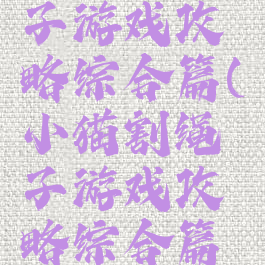 子游戏攻
略综合篇(
小猫割绳
子游戏攻
略综合篇